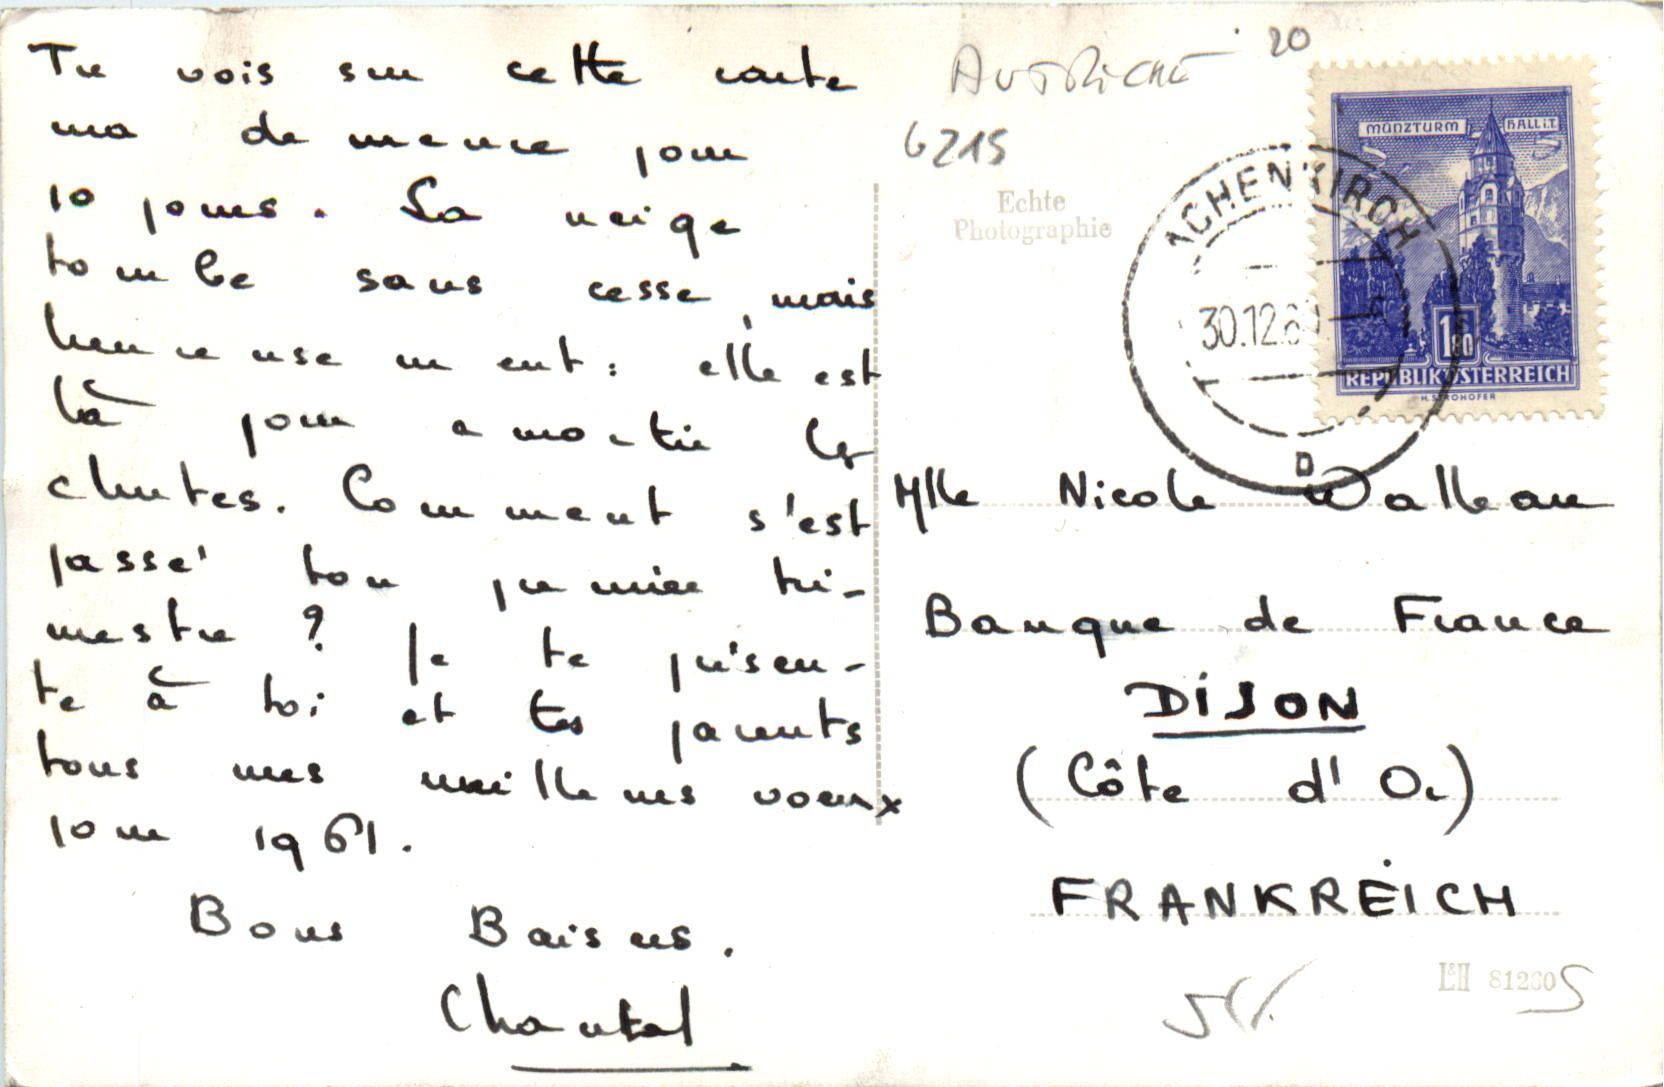 Tu vois sur cette carte
ma demeure pour
10 jours. La neige
tombe sans cesse, mais
heureusement : elle est
là pour amortir les
chutes. Comment s'est
passé ton premier tri-
mestre ? Je te présen-
te à toi et tes parents
tous mes meilleurs voeux
pour 1961.
Bons Baisers.
Chantal
AUTRICHE 20
6215
Echte
Photographie
MÜNZTURM HALL i.T.
1.80
REPUBLIK ÖSTERREICH
H. STROHOFER
ACHENKIRCH
30.12.60
D
Mlle Nicole Walleau
Banque de France
DIJON
(Côte d'Or)
FRANKREICH
L&H 81260